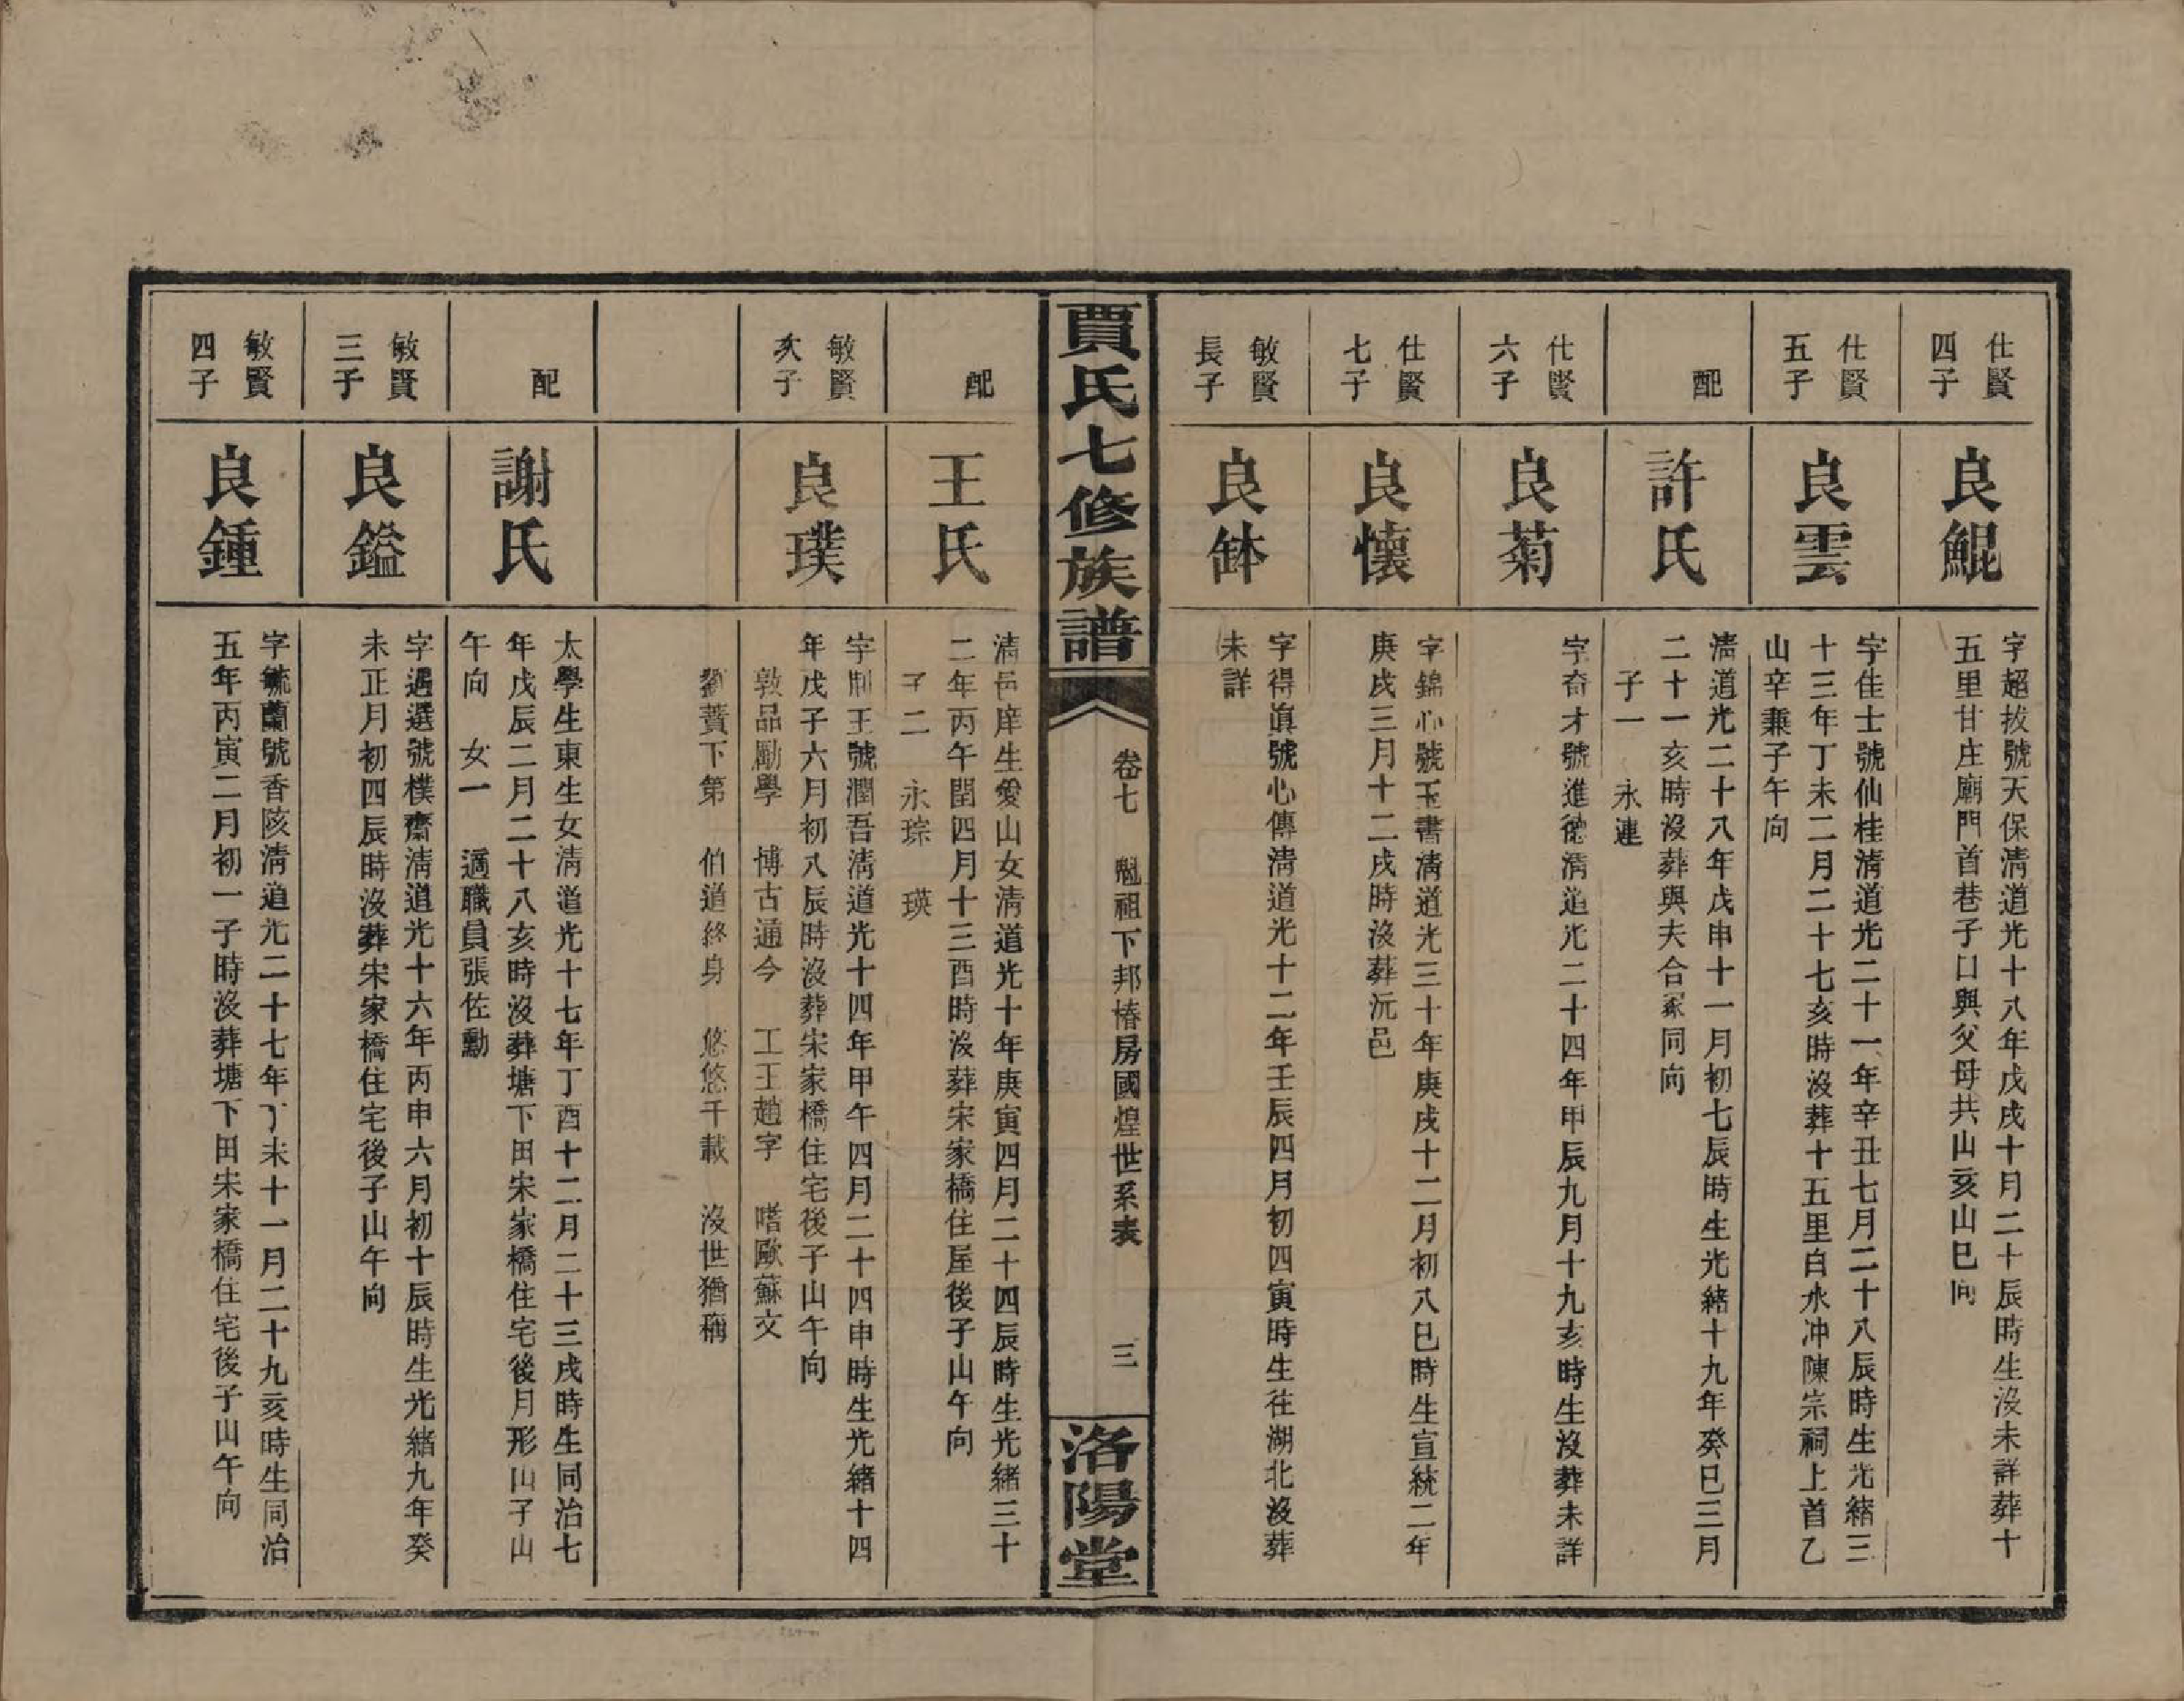 仕賢
四子
良鯤
字超拔號天保清道光十八年戊戌十月二十辰時生沒未詳葬十
五里甘庄廟門首巷子口與父母共山亥山巳向
仕賢
五子
良雲
字佳士號仙桂清道光二十一年辛丑七月二十八辰時生光緒三
十三年丁未二月二十七亥時沒葬十五里白水冲陳宗祠上首乙
山辛兼子午向
配
許氏
清道光二十八年戊申十一月初七辰時生光緒十九年癸巳三月
二十一亥時沒葬與夫合冢同向
子一　永連
仕賢
六子
良菊
字奇才號進德清道光二十四年甲辰九月十九亥時生沒葬未詳
仕賢
七子
良懷
字錦心號玉書清道光三十年庚戌十二月初八巳時生宣統二年
庚戌三月十二戌時沒葬沅邑
敏賢
長子
良缽
字得眞號心傳清道光十二年壬辰四月初四寅時生往湖北沒葬
未詳
賈氏七修族譜
卷七　魁祖下邦椿房國煌世系表　三
洛陽堂
配
王氏
清邑庠生愛山女清道光十年庚寅四月二十四辰時生光緒三十
二年丙午閏四月十三酉時沒葬宋家橋住屋後子山午向
子二　永琮　瑛
敏賢
次子
良璞
字荆王號潤吾清道光十四年甲午四月二十四申時生光緒十四
年戊子六月初八辰時沒葬宋家橋住宅後子山午向
敦品勵學　博古通今　工王趙字　嗜歐蘇文
劉蕡下第　伯道終身　悠悠千載　沒世猶稱
配
謝氏
太學生東生女清道光十七年丁酉十二月二十三戌時生同治七
年戊辰二月二十八亥時沒葬塘下田宋家橋住宅後月形山子山
午向　女一　適職員張佐勳
敏賢
三子
良鎰
字遇選號樸齋清道光十六年丙申六月初十辰時生光緒九年癸
未正月初四辰時沒葬宋家橋住宅後子山午向
敏賢
四子
良鍾
字毓蘭號香陔清道光二十七年丁未十一月二十九亥時生同治
五年丙寅二月初一子時沒葬塘下田宋家橋住宅後子山午向